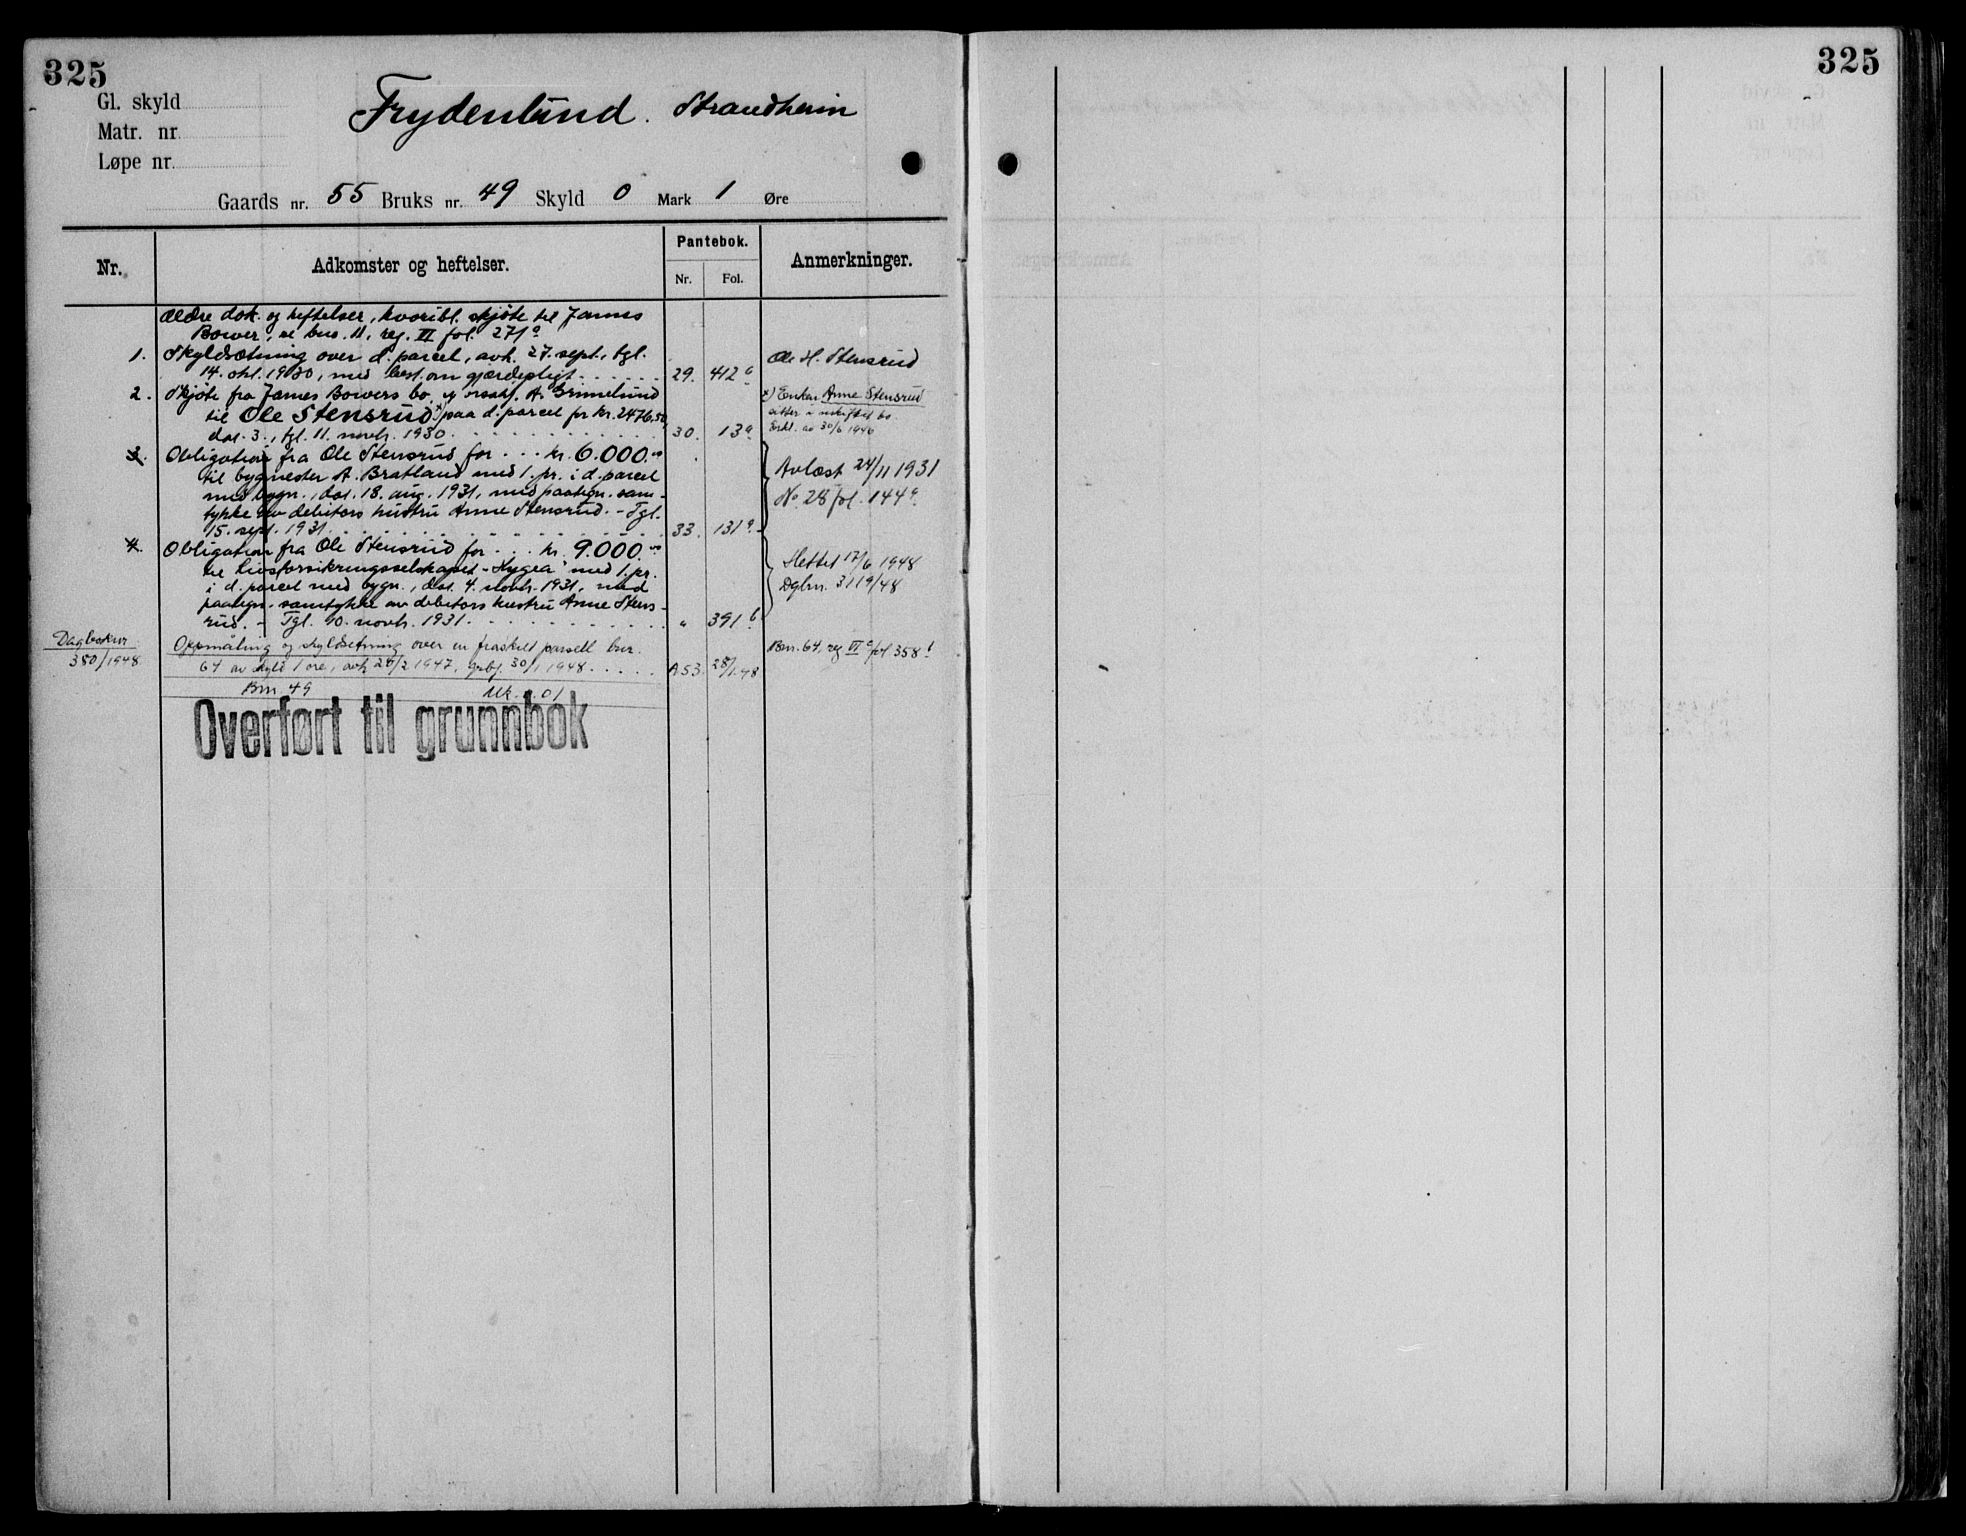 325
325
Gl. skyld
Matr. nr.
Løpe nr.
Frydenlund. Strandheim
Gaards nr. 55 Bruks nr. 49 Skyld 0 Mark 1 Øre
Nr.
Adkomster og heftelser.
Pantebok.
Nr.
Fol.
Anmerkninger.
Ældre dok. og heftelser, hvoribl. skjøte til James
Bower, se bnr. 11, reg. VI fol. 271a
1. Skyldsætning over d. parcel, avh. 27. sept., tgl.
14. okt. 1930, med best. om gjærdepligt . . . . . . 29. 412b
Ole H. Stensrud
2. Skjøte fra James Bowers bo, v/ A. Grimelund
til Ole Stensrud x) paa d. parcel for kr. 2476,50,
dat. 3., tgl. 11. novb. 1930. . . . . . . . . . . 30. 13a
x) Enken Anne Stensrud
sitter i uskiftet bo
Erkl. av 30/6 1946
3. Obligation fra Ole Stensrud for . . . kr. 6.000.00
til bygmester A. Bratland med 1. pr. i d. parcel
med bygn., dat. 18. aug. 1931, med paategn. sam-
tykke av debitors hustru Anne Stensrud. - Tgl.
15. sept. 1931. . . . . . . . . . . . 33. 131a
Avlæst 24/11 1931
No. 28 fol. 144a
4. Obligation fra Ole Stensrud for . . . kr. 9.000.00
til Livsforsikringsselskapet "Hygea" med 1. pr.
i d. parcel med bygn., dat. 4. novb. 1931, med
paategn. samtykke av debitors hustru Anne Stens-
rud. - Tgl. 10. novb. 1931. . . . . . . . . . . " 391b
Slettet 17/6 1948
Dgbnr. 3119/48
Dagboknr
380/1948
Oppmåling og skyldsetning over en fraskilt parsell bnr.
64 av skyld 1 øre, avh. 26/2 1947, 30/1 1948. . . . . A53. 28/1.48
Bnr. 64, reg VI a fol 358b
Bnr. 49 Mk. 0.01
Overført til grunnbok